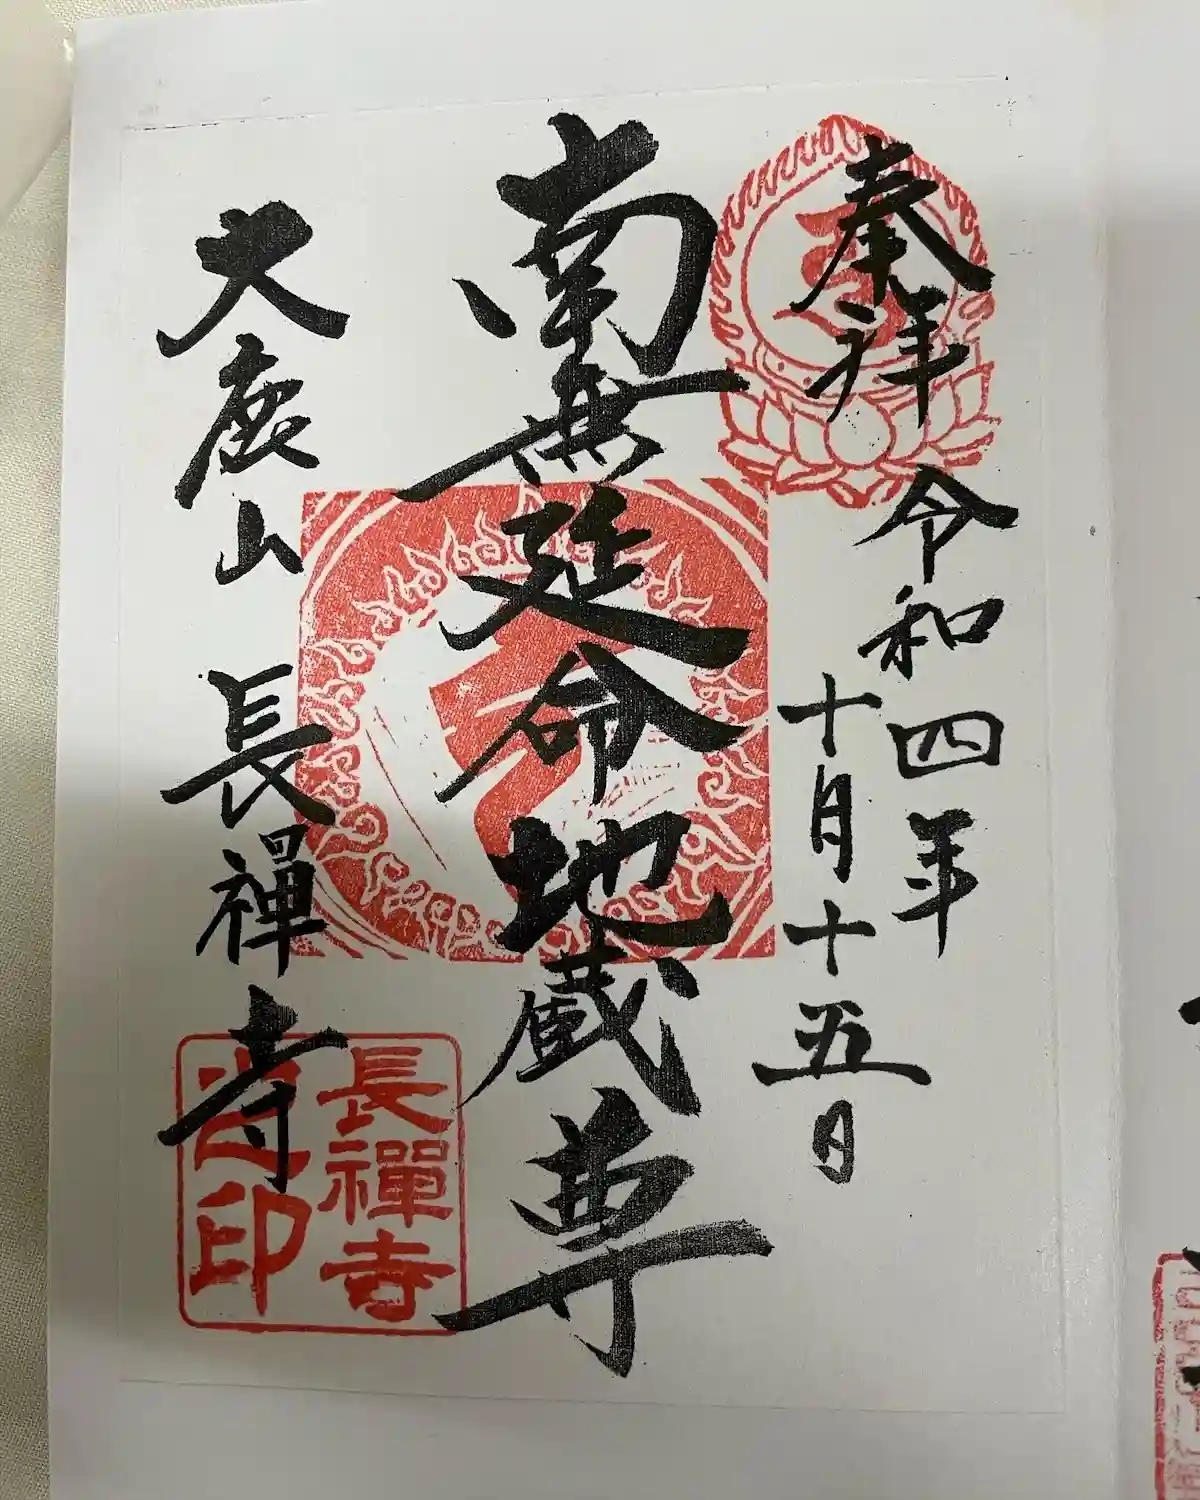 奉拝
令和四年
十月十五日
南無延命地蔵尊
大鹿山 長禪寺
長禪寺
印